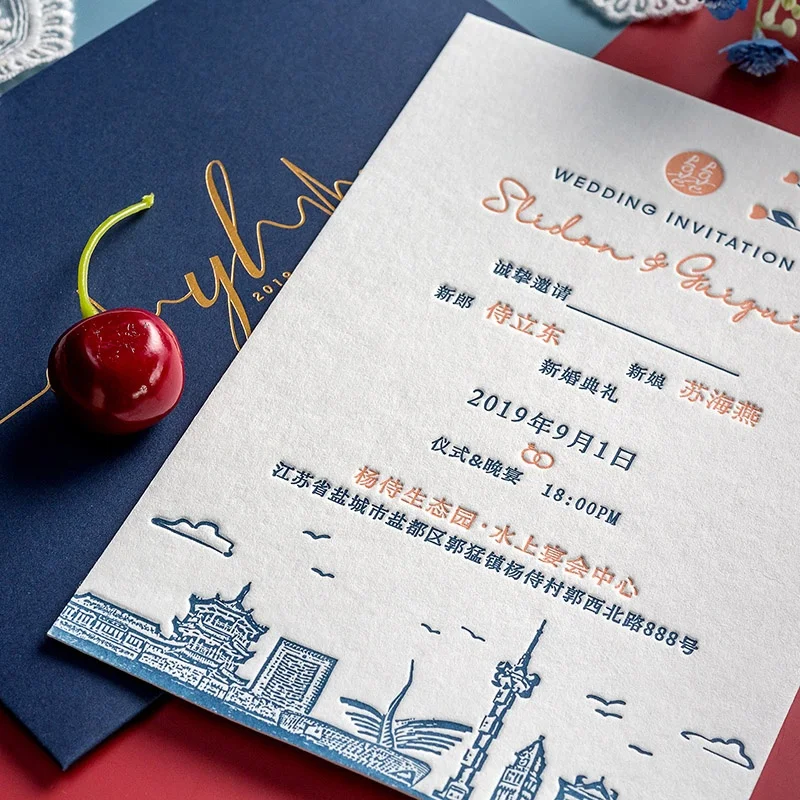 WEDDING INVITATION
Slidon & Guigui
诚挚邀请
新郎 侍立东
新娘 苏海燕
新婚典礼
2019年9月1日
仪式&晚宴 18:00PM
杨侍生态园·水上宴会中心
江苏省盐城市盐都区郭猛镇杨侍村郭西北路888号
2019